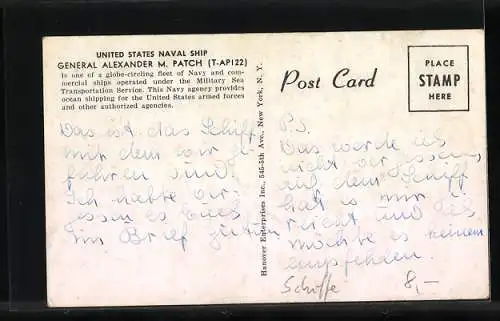 UNITED STATES NAVAL SHIP
GENERAL ALEXANDER M. PATCH (T-AP122)
is one of a globe-circling fleet of Navy and com-
mercial ships operated under the Military Sea
Transportation Service. This Navy agency provides
ocean shipping for the United States armed forces
and other authorized agencies.
Das ist das Schiff
mit dem wir ge-
fahren sind.
Ich hatte ver-
gessen es Euch
im Brief
Hanover Enterprises Inc., 545-5th Ave., New York, N. Y.
Post Card
PLACE
STAMP
HERE
P.S.
Das werde ich
nicht vergessen
auf dem Schiff
hat es mir ge-
reicht und ich
möchte es keinem
empfehlen.
Schiffe 8,-